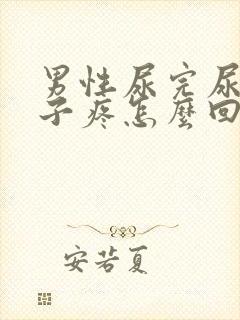 男性尿完尿
子疼怎麼回
安若夏